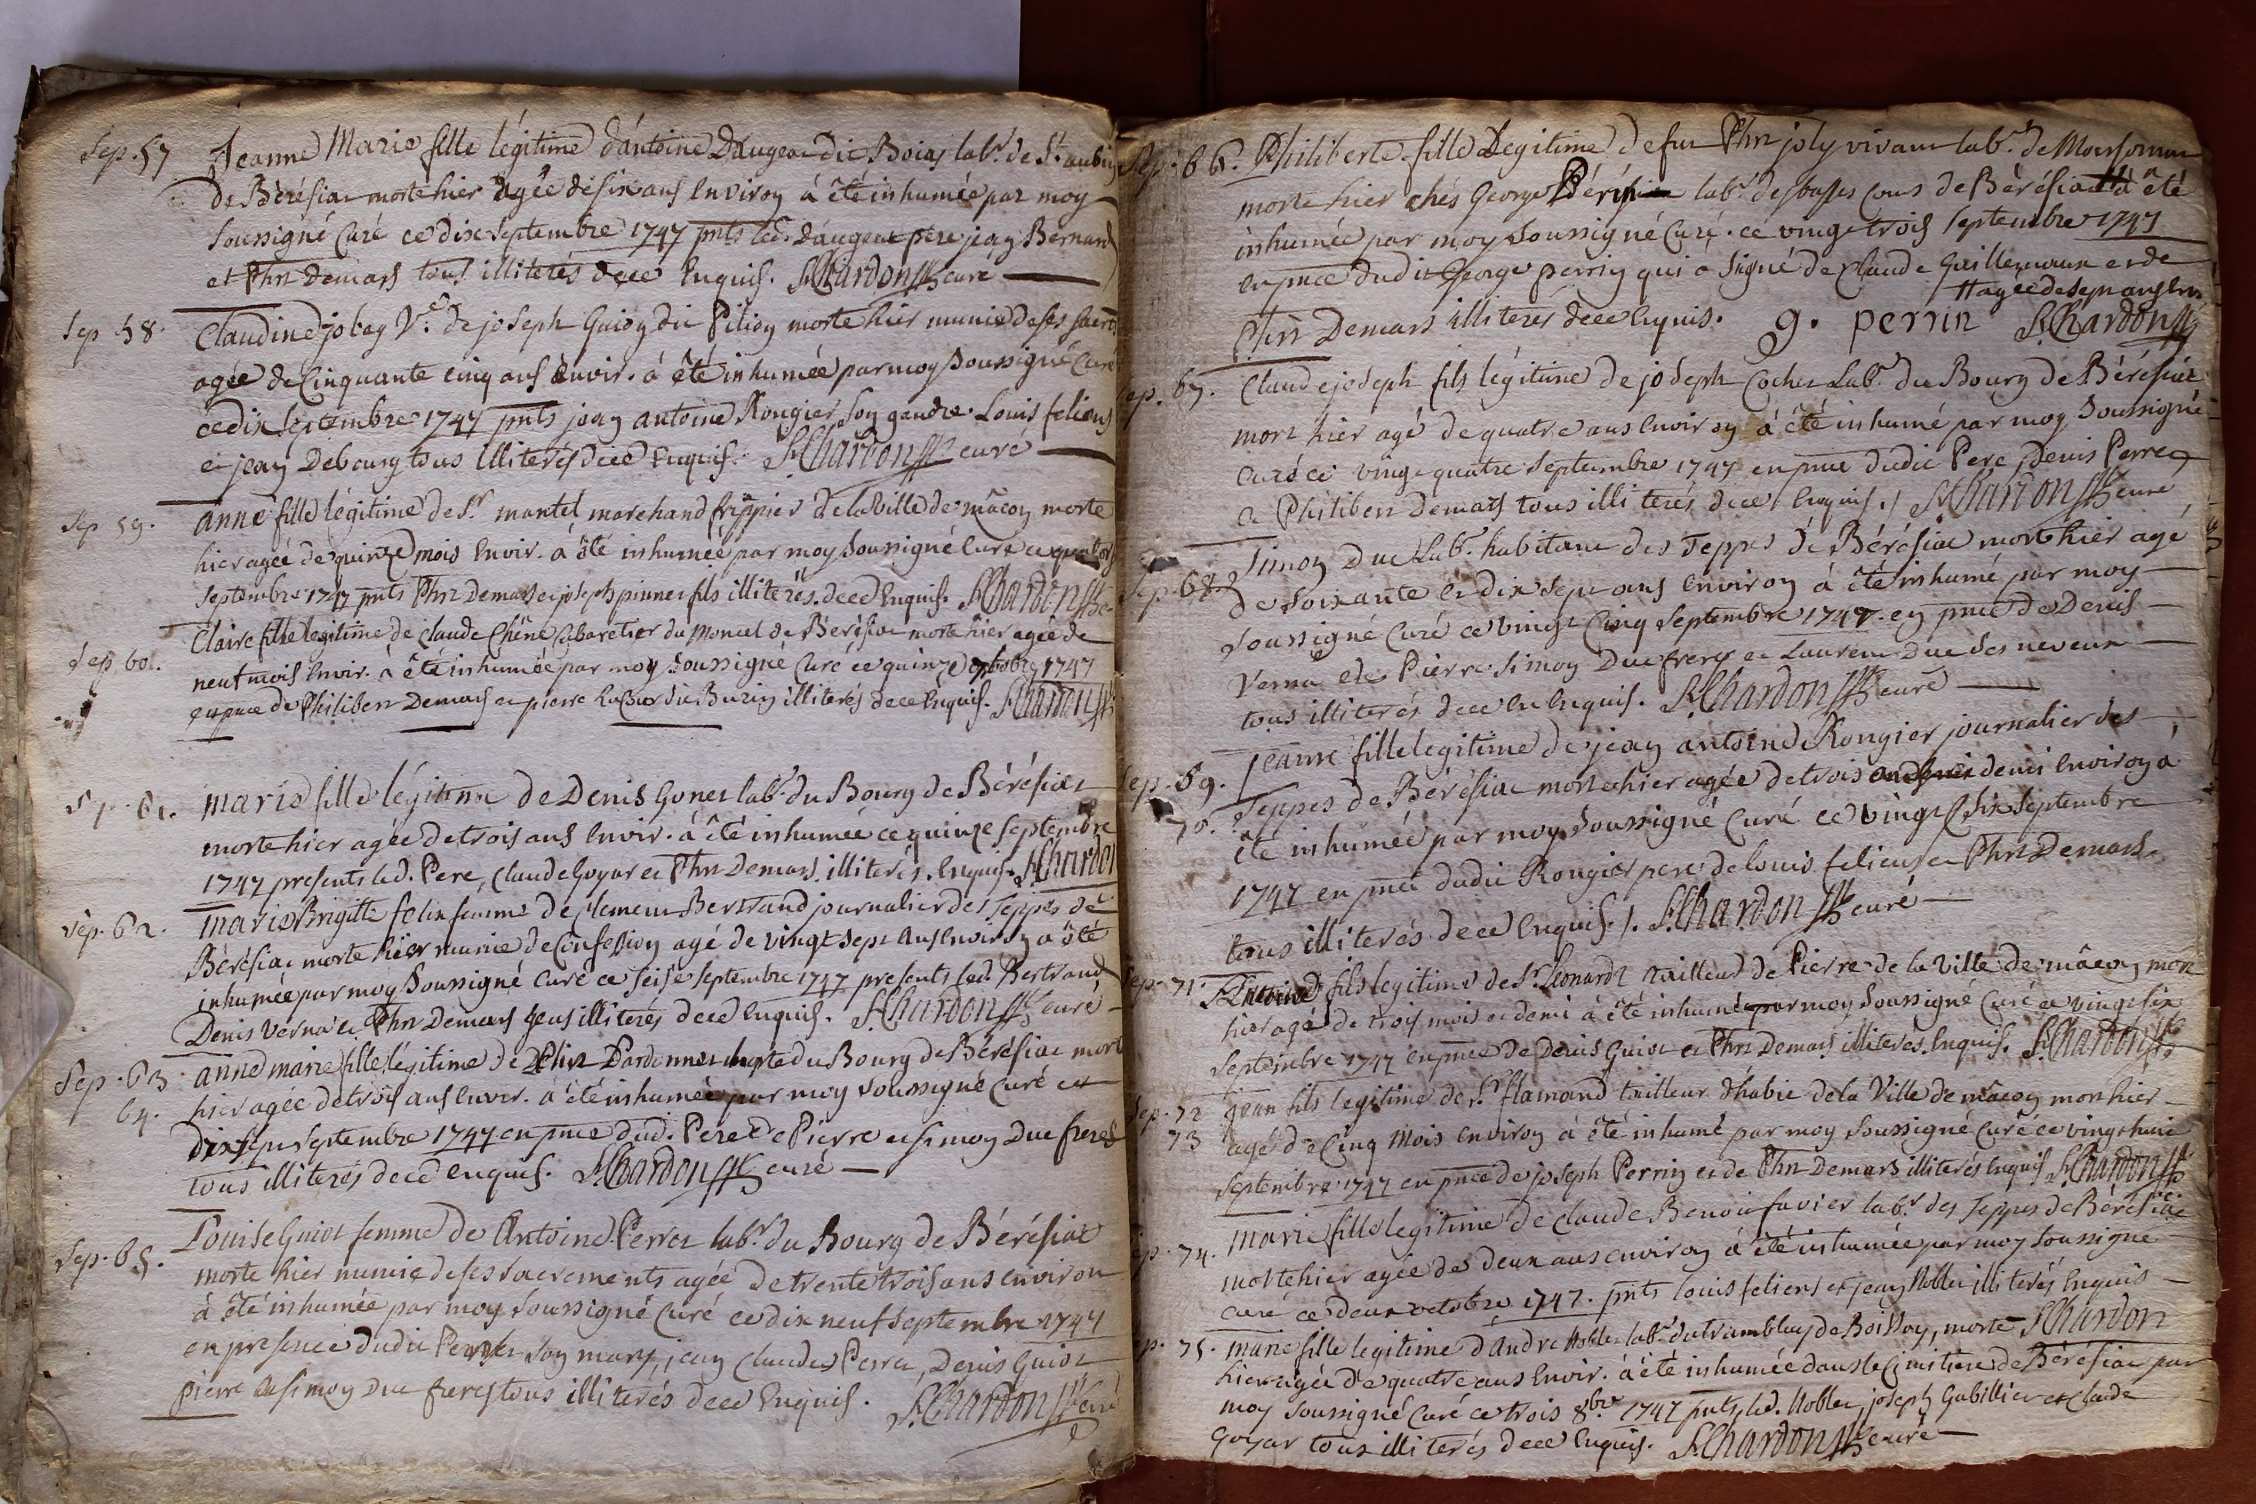 Sep. 57
Jeanne Marie fille légitime d'antoine Daugeat dit Boias labr. de St. aubin
de Bérésiat morte hier agée de six ans environ à été inhumée par moy
soussigné Curé ce dix septembre 1747 pnts led. daugeat père jean Bernard
et Phrt Demars tous illiterés de ce Enquis. Chardon curé
Sep 58.
Claudine jobey Ve. de joseph Guion dit Pilion morte hier munie de ses sacrts
agée de Cinquante cinq ans Envir. à été inhumée par moy soussigné Curé
ce dix septembre 1747 pnts jean antoine Rongier son gendre Louis feliens
et jean Debourg tous illiterés de ce Enquis. Chardon curé
Sep 59.
anne fille légitime de Sr. mantel marchand frippier de la ville de mâcon morte
hier agée de quinze mois Envir. à été inhumée par moy soussigné Curé ce
septembre 1747 pnts Phrt Demars et joseph fils illiterés de ce Enquis. Chardon
Sep 60.
Claire fille legitime de Claude Chêne Cabaretier du Moncel de Bérésiat morte hier agée de
neuf mois Envir. à été inhumée par moy soussigné Curé ce quinze 1747
en pnce de Philibert Demars et pierre du Buzin illiterés de ce Enquis. Chardon
Sep. 61.
marie fille légitime de Denis Gonet labr. du Bourg de Bérésiat
morte hier agée de trois ans Envir. à été inhumée ce quinze septembre
1747 presents led. Pere, Claude Goyat et Phrt Demars illiterés Enquis. Chardon
Sep. 62.
marie Brigitte felix femme de Clement Bertrand journalier des Teppes de
Bérésiat morte hier munie de Confession agé de vingt sept ans Environ a été
inhumée par moy soussigné Curé ce seise septembre 1747 presents led. Bertrand
Denis Verna et Phrt Demars gens illiterés de ce Enquis. Chardon curé
Sep. 63
64.
anne marie fille légitime de Pardonnet du Bourg de Bérésiat mort
hier agée de trois ans Envir. à été inhumée par moy soussigné Curé ce
dix sept septembre 1747 en pnce dud. Pere de Pierre et simon Duc freres
tous illiterés de ce Enquis. Chardon curé
Sep. 65.
Louise Guiot femme de Antoine Perret labr. du Bourg de Bérésiat
morte hier munie de ses sacrements agée de trente trois ans environ
à été inhumée par moy soussigné Curé ce dix neuf septembre 1747
en presence dudit Perret son mary, jean Claude Perra, Denis Guiot
pierre et simon Duc freres tous illiterés de ce Enquis. Chardon Curé
Sep. 66.
Philiberte fille Legitime de fut Phrt joly vivant labr. de
morte hier chés George Périn labr. des basses Cours de Bérésiat à été
inhumée par moy soussigné Curé. ce vingt trois septembre 1747
en pnce dudit George perrin qui a signé de Claude Guillermaux et de
agée de sept ans
Phrt Demars illiterés de ce Enquis. g. perrin Chardon
Sep. 67.
Claude joseph fils légitime de joseph Cochet Labr. du Bourg de Bérésiat
mort hier agé de quatre ans Environ à été inhumé par moy soussigné
curé ce vingt quatre septembre 1747 en pnce dudit Pere Denis Perret
et Philibert Demars tous illiterés de ce Enquis./ Chardon curé
Sep. 68.
Simon Duc Labr. habitant des Teppes de Bérésiat mort hier agé
de soixante et dix sept ans environ à été inhumé par moy
soussigné Curé ce vingt Cinq septembre 1747. en pnce de Denis
Verna de Pierre simon Duc freres et Laurent Duc ses neveux
tous illiterés de ce Enquis. Chardon curé
Sep. 69.
70.
Jeanne fille legitime de jean antoine Rongier journalier des
Teppes de Bérésiat morte hier agée de trois demi Environ à
été inhumée par moy soussigné Curé ce vingt six septembre
1747 en pnce dudit Rongier pere de louis feliens et Phrt Demars
tous illiterés de ce Enquis./. Chardon curé
Sep. 71.
Antoine fils legitime de Sr. Leonardt tailleur de Pierre de la Ville de mâcon mort
hier agé de trois mois et demi à été inhumé par moy soussigné Curé ce vingt six
septembre 1747 en pnce de Denis Guiot et Phrt Demars illiterés Enquis. Chardon
Sep. 72
73
jean fils legitime de Sr. flamand tailleur d'habit de la Ville de mâcon mort hier
agé de Cinq mois environ à été inhumé par moy soussigné Curé ce vingt huit
septembre 1747 en pnce de joseph Perrin et de Phrt Demars illiterés Enquis Chardon
Sep. 74.
marie fille legitime de Claude Benoit favier labr. des Teppes de Bérésiat
morte hier agée de deux ans environ à été inhumée par moy soussigné
curé ce deux octobre 1747. pnts louis feliens et jean Noblet illiterés Enquis
Chardon
Sep. 75.
marie fille legitime d'André Noblet labr. du tramblay de Boissey, morte
hier agée de quatre ans Envir. à été inhumée dans le Cimitiere de Bérésiat par
moy soussigné Curé ce trois 8bre 1747 pnts led. Noblet, joseph Gabillier et Claude
Goyat tous illiterés de ce Enquis. Chardon curé